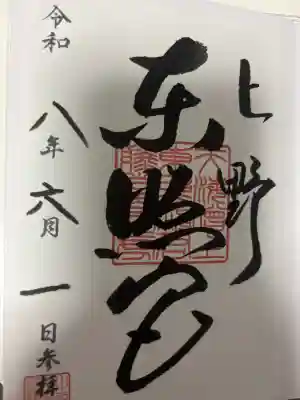 上野
東照宮
令和八年六月一日参拝